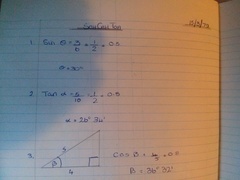 Sin Cos Tan
1. Sin θ = 3/6 = 1/2 = 0.5
θ = 30°
2. Tan α = 5/10 = 1/2 = 0.5
α = 26° 34'
3. 5 Cos β = 4/5 = 0.8
β 4 β = 36° 52'